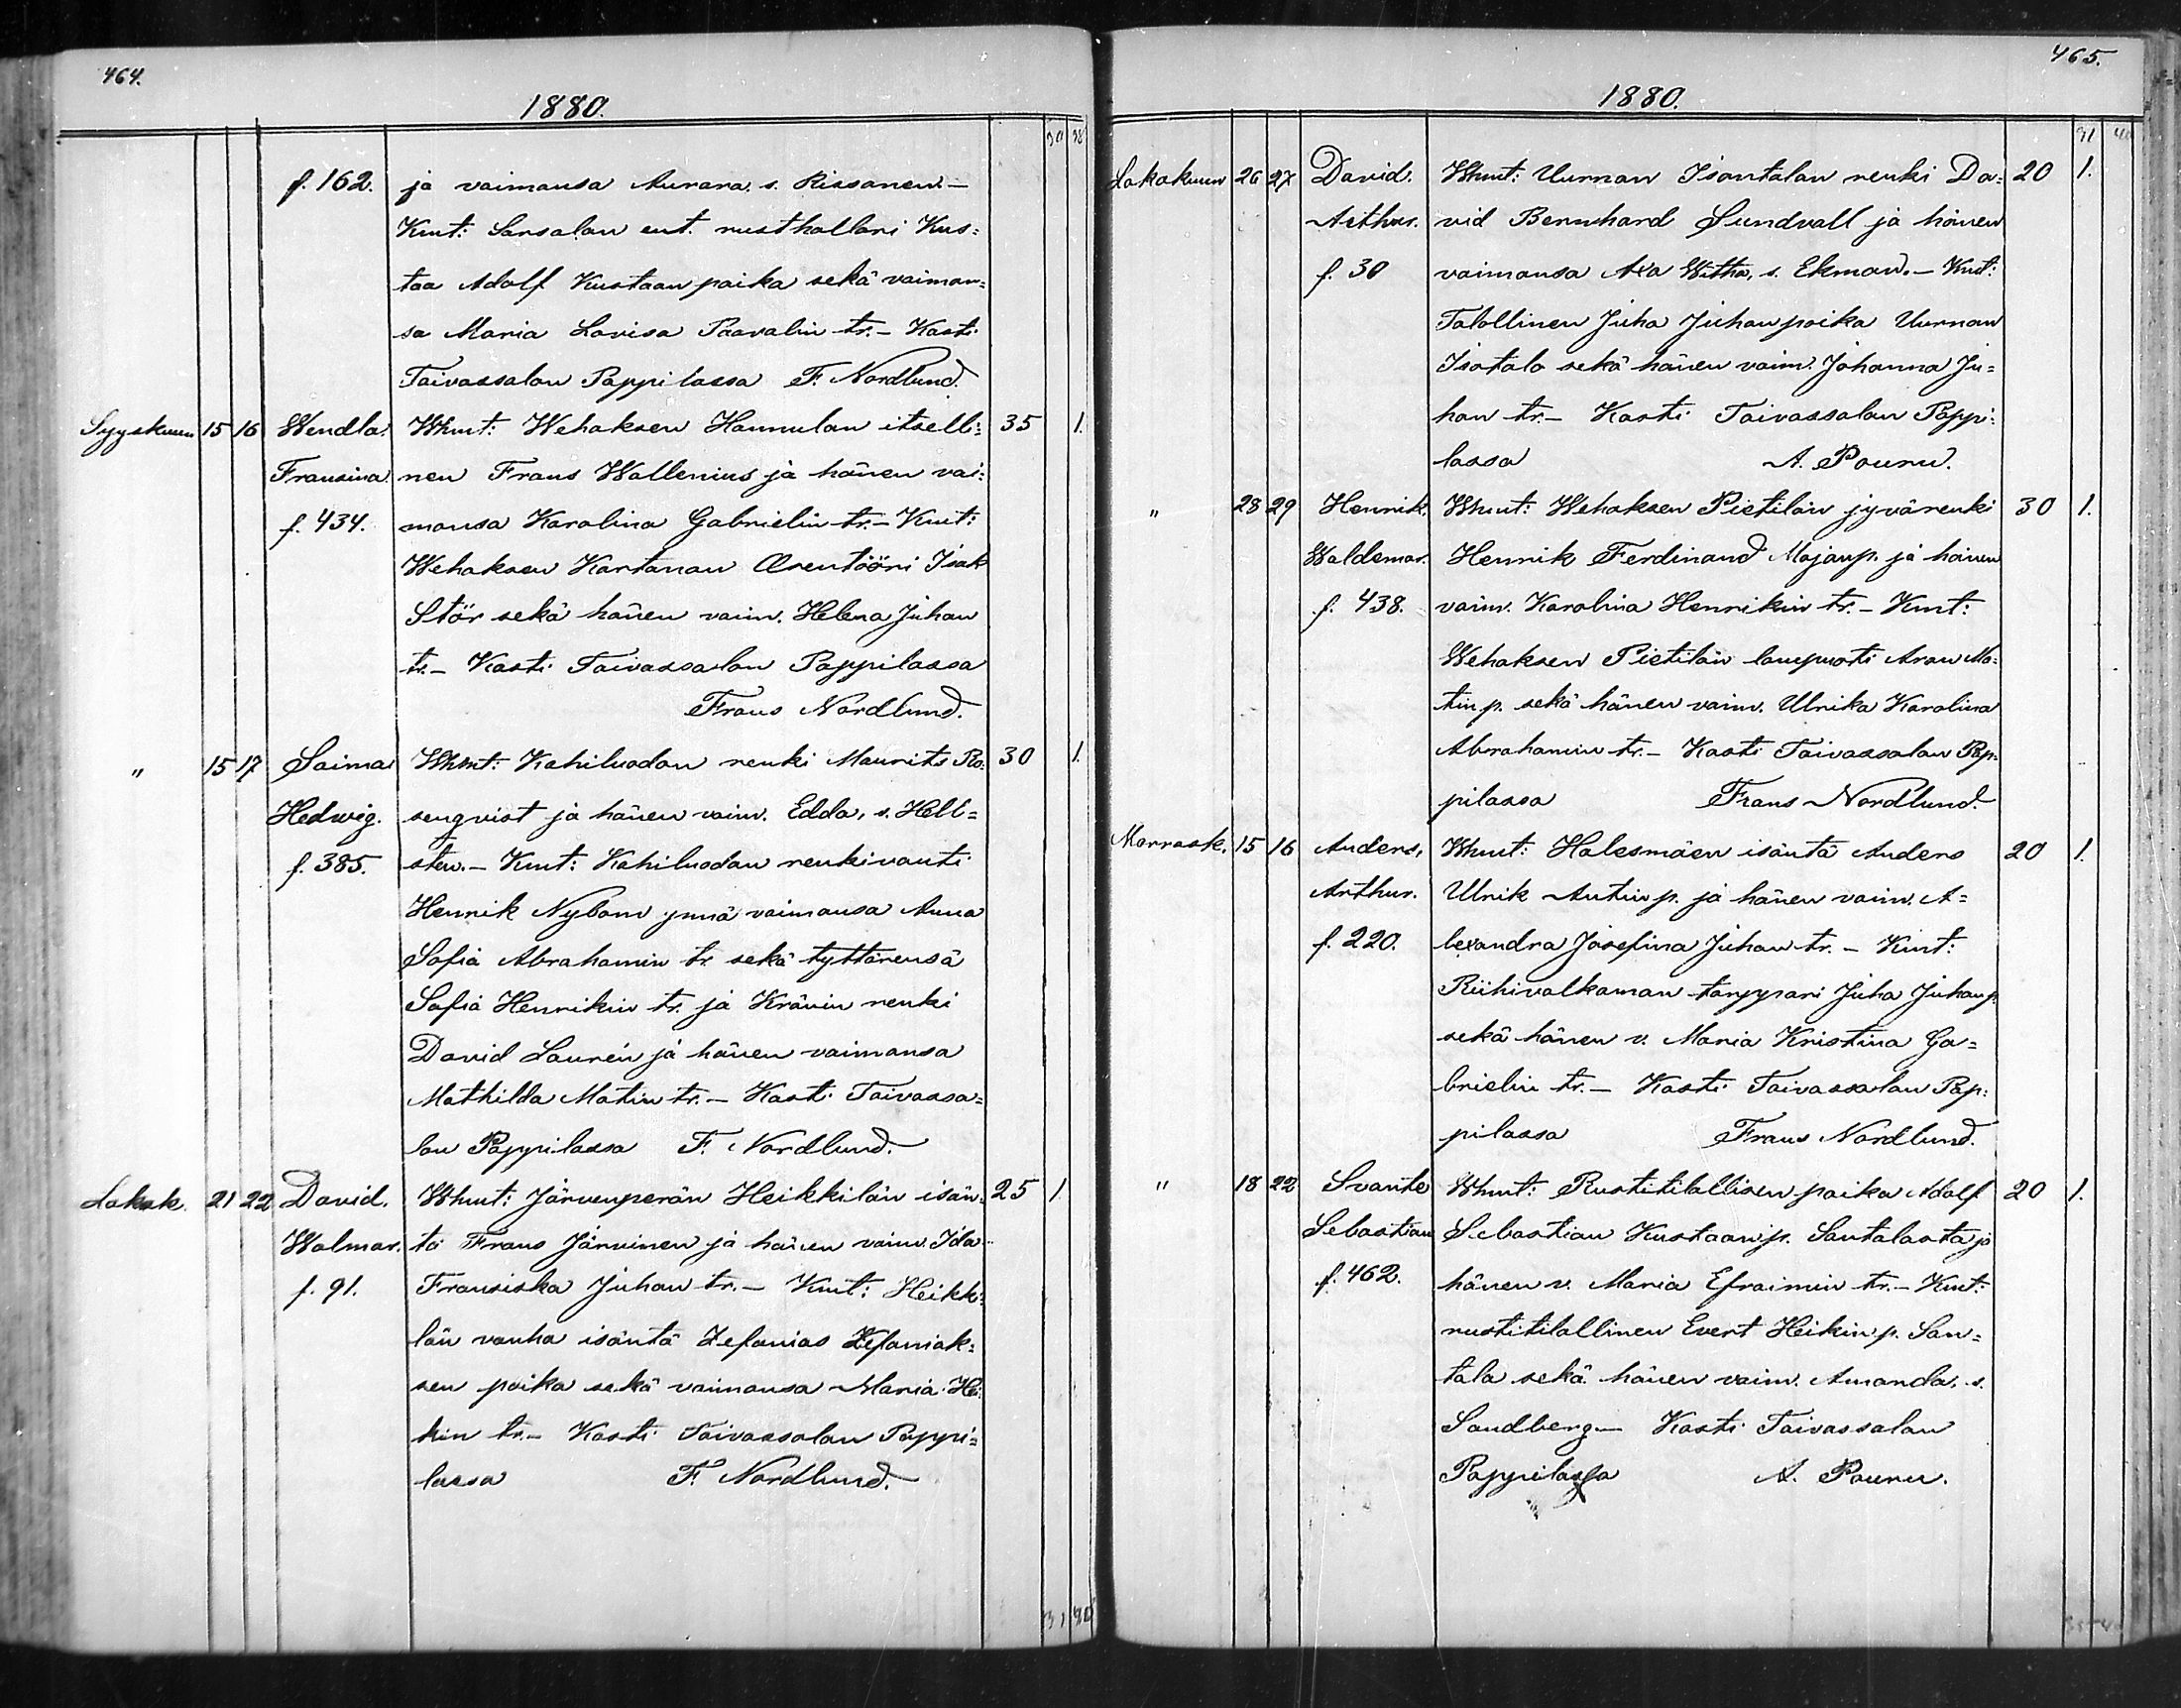 464.
1880.
30 38
f. 162. ja vaimonsa Aurora. s. Rissanen. —
Kmt: Sarsalan ent. rusthollari Kus=
taa Adolf Kustaan poika sekä vaimon=
sa Maria Lovisa Paavalin tr. — Kasti
Taivassalon Pappilassa F. Nordlund.
Syyskuun 15 16 Wendla. Whmt: Wehaksen Hannulan itselli= 35 1.
Fransina. nen Frans Wallenius ja hänen vai=
f. 434. monsa Karolina Gabrielin tr. — Kmt:
Wehaksen Kartanon Arentööri Isak
Stör sekä hänen vaim. Helena Juhan
tr. — Kasti Taivassalon Pappilassa
Frans Nordlund.
" 15 17 Saima Whmt: Kahiluodon renki Maurits Ro= 30 1.
Hedwig. senqvist ja hänen vaim. Edda, s. Hell=
f. 385. sten. — Kmt: Kahiluodon renkivouti
Henrik Nybom ynnä vaimonsa Anna
Sofia Abrahamin tr. sekä tyttärensä
Sofia Henrikin tr. ja Kränin renki
David Laurén ja hänen vaimonsa
Mathilda Matin tr. — Kasti Taivassa=
lon Pappilassa F. Nordlund. —
Lokak. 21 22 David. Whmt: Järvenperän Heikkilän isän= 25 1.
Walmar. tä Frans Järvinen ja hänen vaim. Ida
f. 91. Fransiska Juhan tr. — Kmt: Heikki=
län vanha isäntä Zefanias Zefaniak=
sen poika sekä vaimonsa Maria Hei=
kin tr. — Kasti Taivassalon Pappi=
lassa F. Nordlund. —
31 40
465.
1880.
31 40
Lokakuun 26 27 David. Whmt: Uurnan Isontalon renki Da= 20 1.
Arthur. vid Bernhard Sundvall ja hänen
f. 30 vaimonsa Axa Witha, s. Ekman. — Kmt:
Talollinen Juha Juhanpoika Uurnan
Isotalo sekä hänen vaim. Johanna Ju=
han tr. — Kasti Taivassalon Pappi=
lassa A. Pounu.
" 28 29 Henrik. Whmt: Wehaksen Pietilän jyvärenki 30 1.
Waldemar. Henrik Ferdinand Majanp. ja hänen
f. 438. vaim. Karolina Henrikin tr. — Kmt:
Wehaksen Pietilän lampuoti Aron Ma=
tin p. sekä hänen vaim. Ulrika Karolina
Abrahamin tr. — Kasti Taivassalon Pap=
pilassa Frans Nordlund.
Marrask. 15 16 Anders, Whmt: Halesmäen isäntä Anders 20 1.
Arthur. Ulrik Antinp. ja hänen vaim. A=
f. 220. lexandra Josefina Juhan tr. — Kmt:
Riihivalkaman torppari Juha Juhanp.
sekä hänen v. Maria Kristina Ga=
brielin tr. — Kasti Taivassalon Pap=
pilassa Frans Nordlund.
" 18 22 Svante Whmt: Rustitilallisen poika Adolf 20 1.
Sebastian Sebastian Kustaan p. Santalasta ja
f. 462. hänen v. Maria Efraimin tr. — Kmt:
rustitilallinen Evert Heikin p. San=
tala sekä hänen vaim. Amanda, s.
Sandberg — Kasti Taivassalon
Pappilassa A. Pounu.